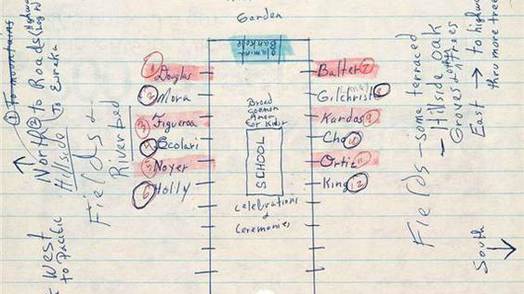 Garden
① Douglas
② Mora
③ Figueroa
④ Scolari
⑤ Noyer
⑥ Holly
Bankole
Broad
common
Area
SCHOOL
Celebrations
&
Ceremonies
Balter ⑦
Gilchrist ⑧
Kardos ⑨
Cho
Ortiz ⑪
King ⑫
① To mountains
North ② to Roads
To Eureka
Hillside
Fields &
Riverbed
West
to Pacific
Fields — some terraced
— Hillside oak
Groves
East → to highway
thru more trees
South